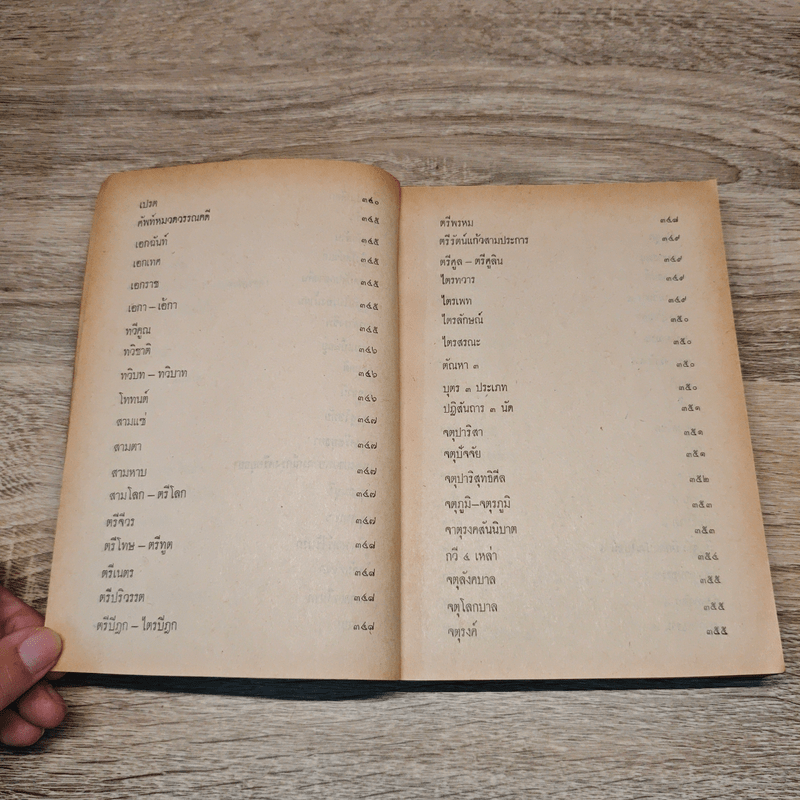 เปรต ๓๔๐
ศัพท์หมวดวรรณคดี ๓๔๕
เอกฉันท์ ๓๔๕
เอกเทศ ๓๔๕
เอกราช ๓๔๕
เอกา – เอ้กา ๓๔๕
ทวีคูณ ๓๔๕
ทวิชาติ ๓๔๖
ทวิบท – ทวิบาท ๓๔๖
โททนต์ ๓๔๖
สามแซ่ ๓๔๗
สามตา ๓๔๗
สามหาบ ๓๔๗
สามโลก – ตรีโลก ๓๔๗
ตรีจีวร ๓๔๗
ตรีโทษ – ตรีทูต ๓๔๘
ตรีเนตร ๓๔๘
ตรีปริวรรต ๓๔๘
ตรีปิฎก – ไตรปิฎก ๓๔๘
ตรีพรหม ๓๔๘
ตรีรัตน์แก้วสามประการ ๓๔๙
ตรีศูล – ตรีศูลิน ๓๔๙
ไตรทวาร ๓๔๙
ไตรเพท ๓๔๙
ไตรลักษณ์ ๓๕๐
ไตรสรณะ ๓๕๐
ตัณหา ๓ ๓๕๐
บุตร ๓ ประเภท ๓๕๐
ปฏิสันถาร ๓ นัด ๓๕๑
จตุปาริสา ๓๕๑
จตุปัจจัย ๓๕๑
จตุปาริสุทธิศีล ๓๕๒
จตุภูมิ–จตุรภูมิ ๓๕๓
จาตุรงคสันนิบาต ๓๕๓
กวี ๔ เหล่า ๓๕๔
จตุลังคบาล ๓๕๕
จตุโลกบาล ๓๕๕
จตุรงค์ ๓๕๕